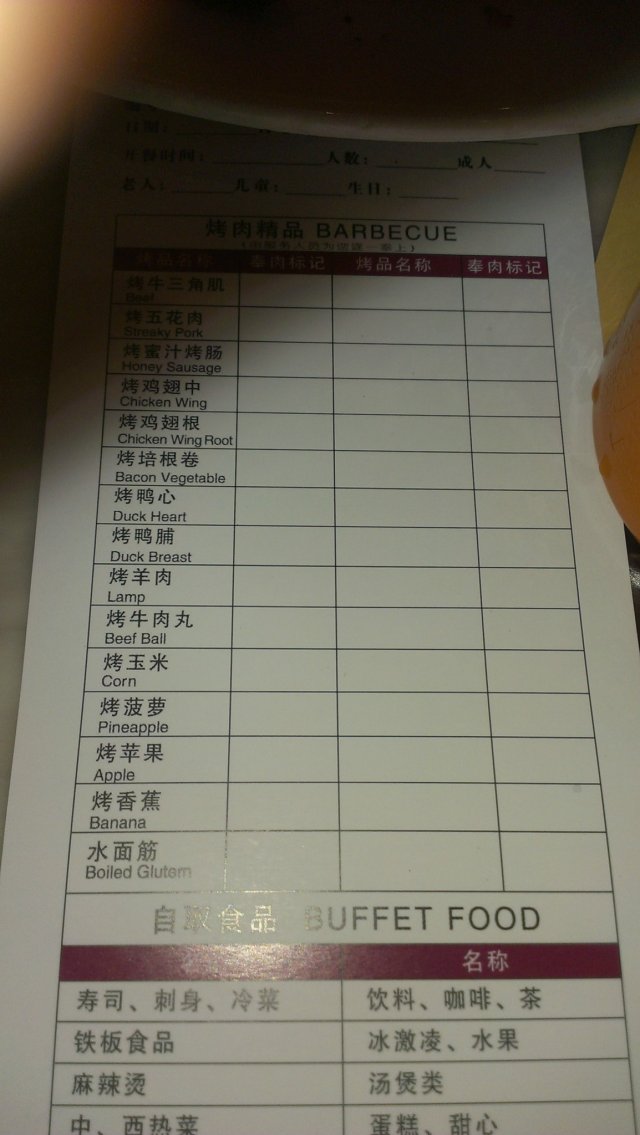 日期：
开餐时间： 人数： 成人
老人： 儿童： 生日：
烤肉精品 BARBECUE
(由服务人员为您逐一奉上)
烤品名称 奉肉标记 烤品名称 奉肉标记
烤牛三角肌
Beef
烤五花肉
Streaky Pork
烤蜜汁烤肠
Honey Sausage
烤鸡翅中
Chicken Wing
烤鸡翅根
Chicken Wing Root
烤培根卷
Bacon Vegetable
烤鸭心
Duck Heart
烤鸭脯
Duck Breast
烤羊肉
Lamp
烤牛肉丸
Beef Ball
烤玉米
Corn
烤菠萝
Pineapple
烤苹果
Apple
烤香蕉
Banana
水面筋
Boiled Glutern
自取食品 BUFFET FOOD
名称
寿司、刺身、冷菜 饮料、咖啡、茶
铁板食品 冰激凌、水果
麻辣烫 汤煲类
中、西热菜 蛋糕、甜心